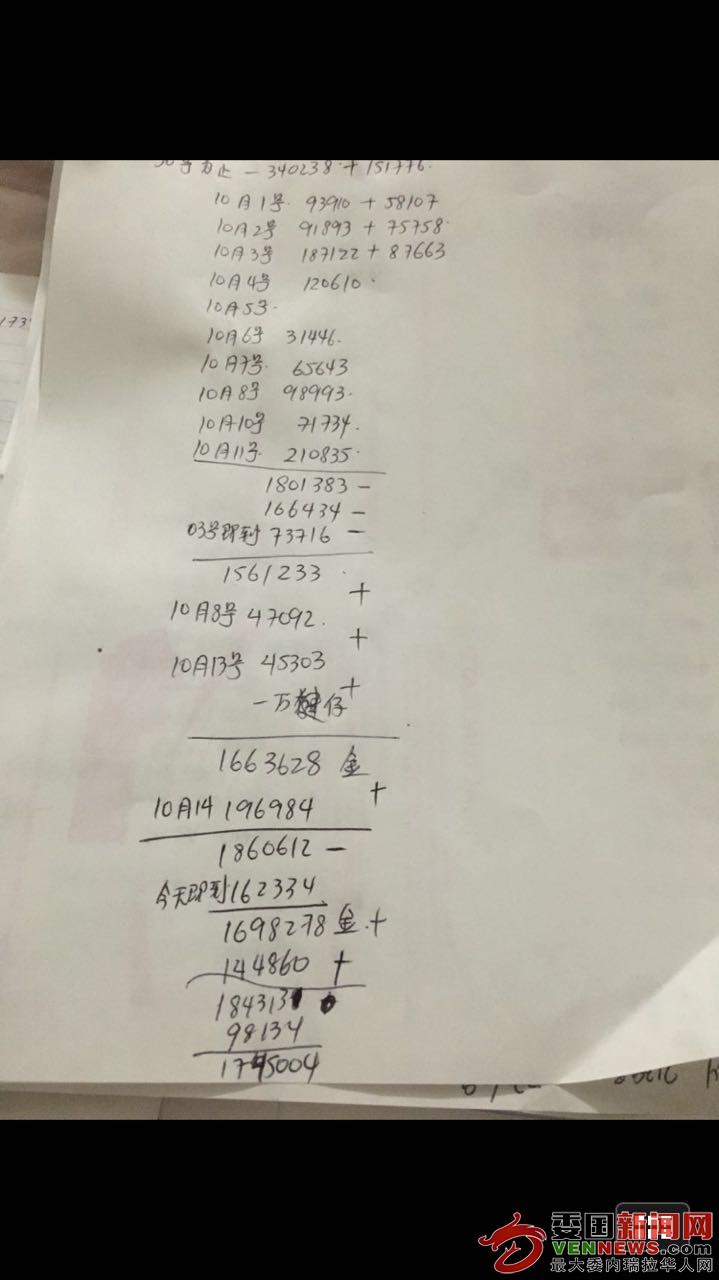 30号为止 - 340238 + 151776.
10月1号 93910 + 58107
10月2号 91893 + 75758
10月3号 187122 + 87663
10月4号 120610
10月5号
10月6号 31446
10月7号 65643
10月8号 98993
10月10号 71734
10月11号 210835
1801383 -
166434 -
03号即到 73716 -
1561233 +
10月8号 47092 +
10月13号 45303 +
一万 仔
1663628 金 +
10月14 196984
1860612 -
今天即到162334
1698278 金 +
144860 +
184313
98134
1745004
委国新闻网
VENNEWS.com
最大委内瑞拉华人网